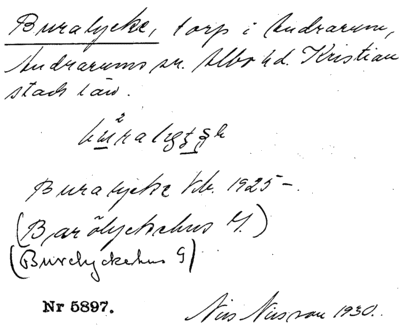 Buralycke, torp i Andrarum,
Andrarums sn. Albo hd. Kristian
stads län.
Buralycke kb. 1925 –.
(Barölyckehus M.)
(Burelyckehus G)
Nr 5897.
Nils Nilsson 1930.